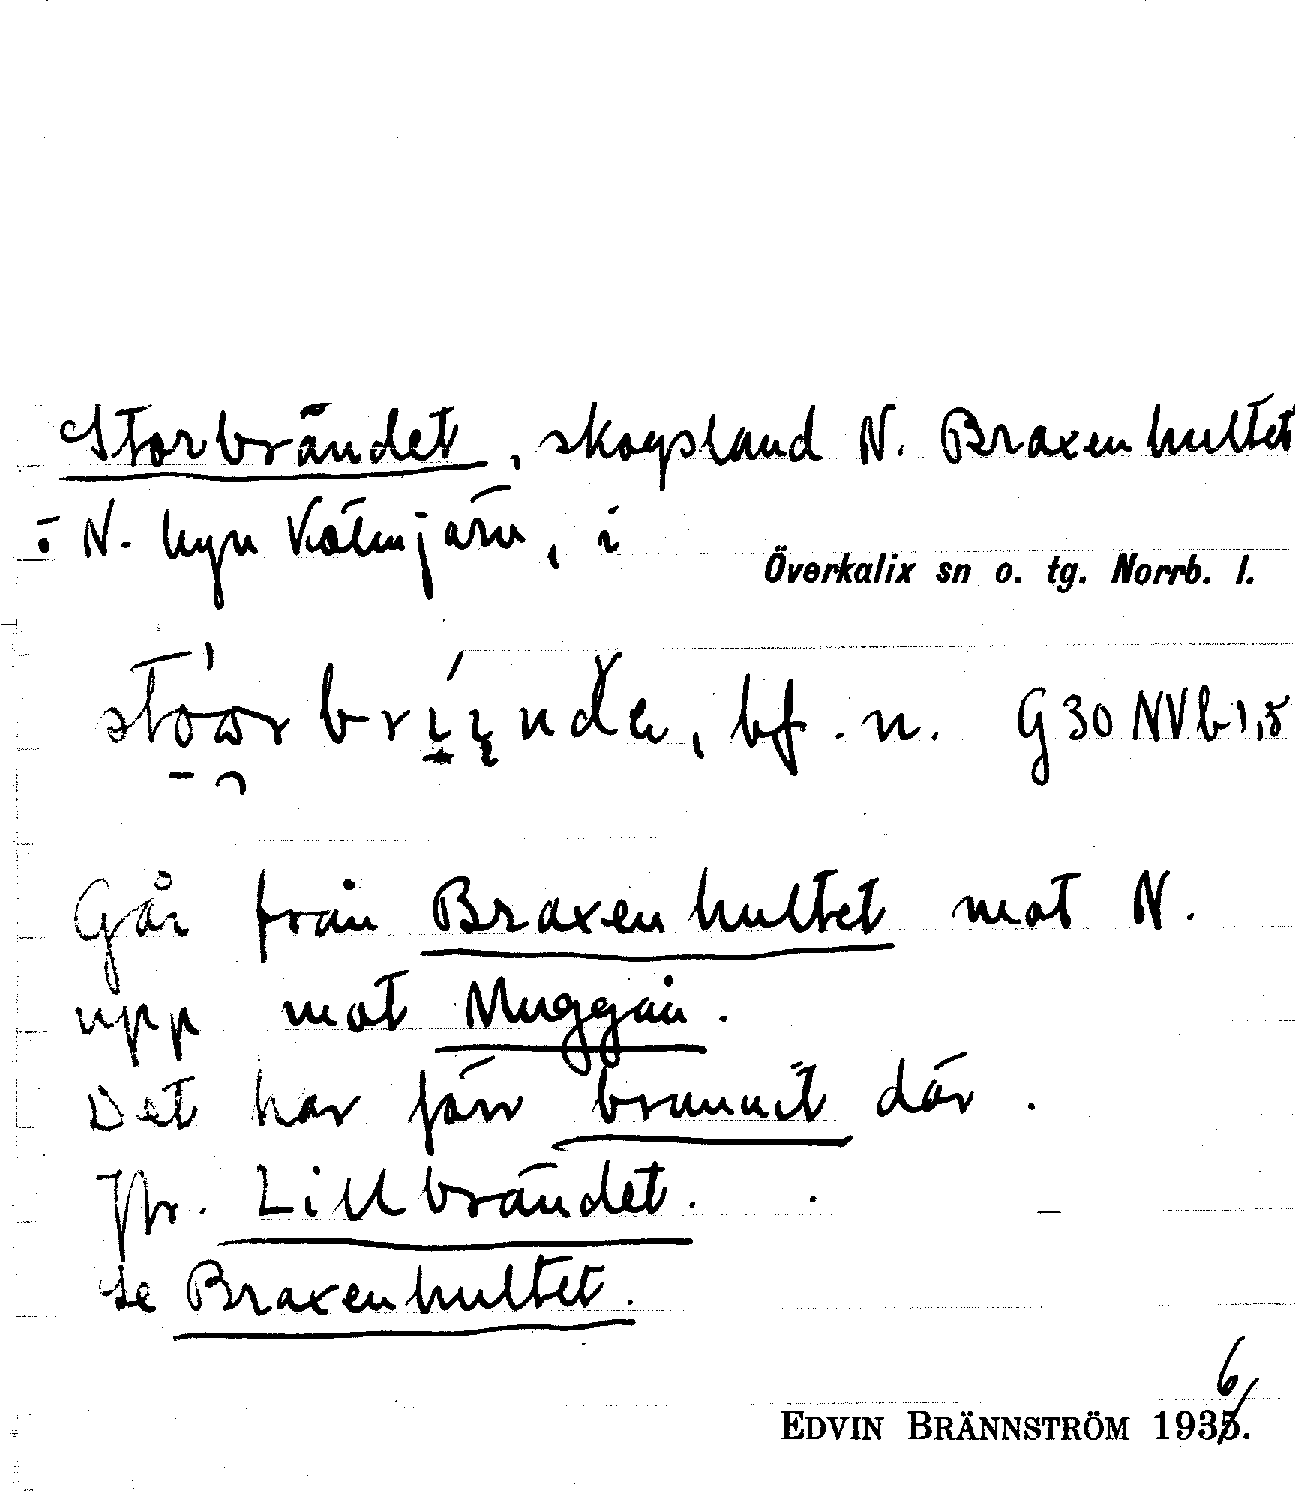 Storbrändet, skogsland N. Braxenhultet
i N. hyn Kölmjärv, i
Överkalix sn o. tg. Norrb. l.
bf. n. G30 NVb1,5
Går från Braxenhultet mot N.
upp mot Muggån.
Det har förr brunnit där.
Jfr. Lillbrändet.
Se Braxenhultet.
EDVIN BRÄNNSTRÖM 1936.